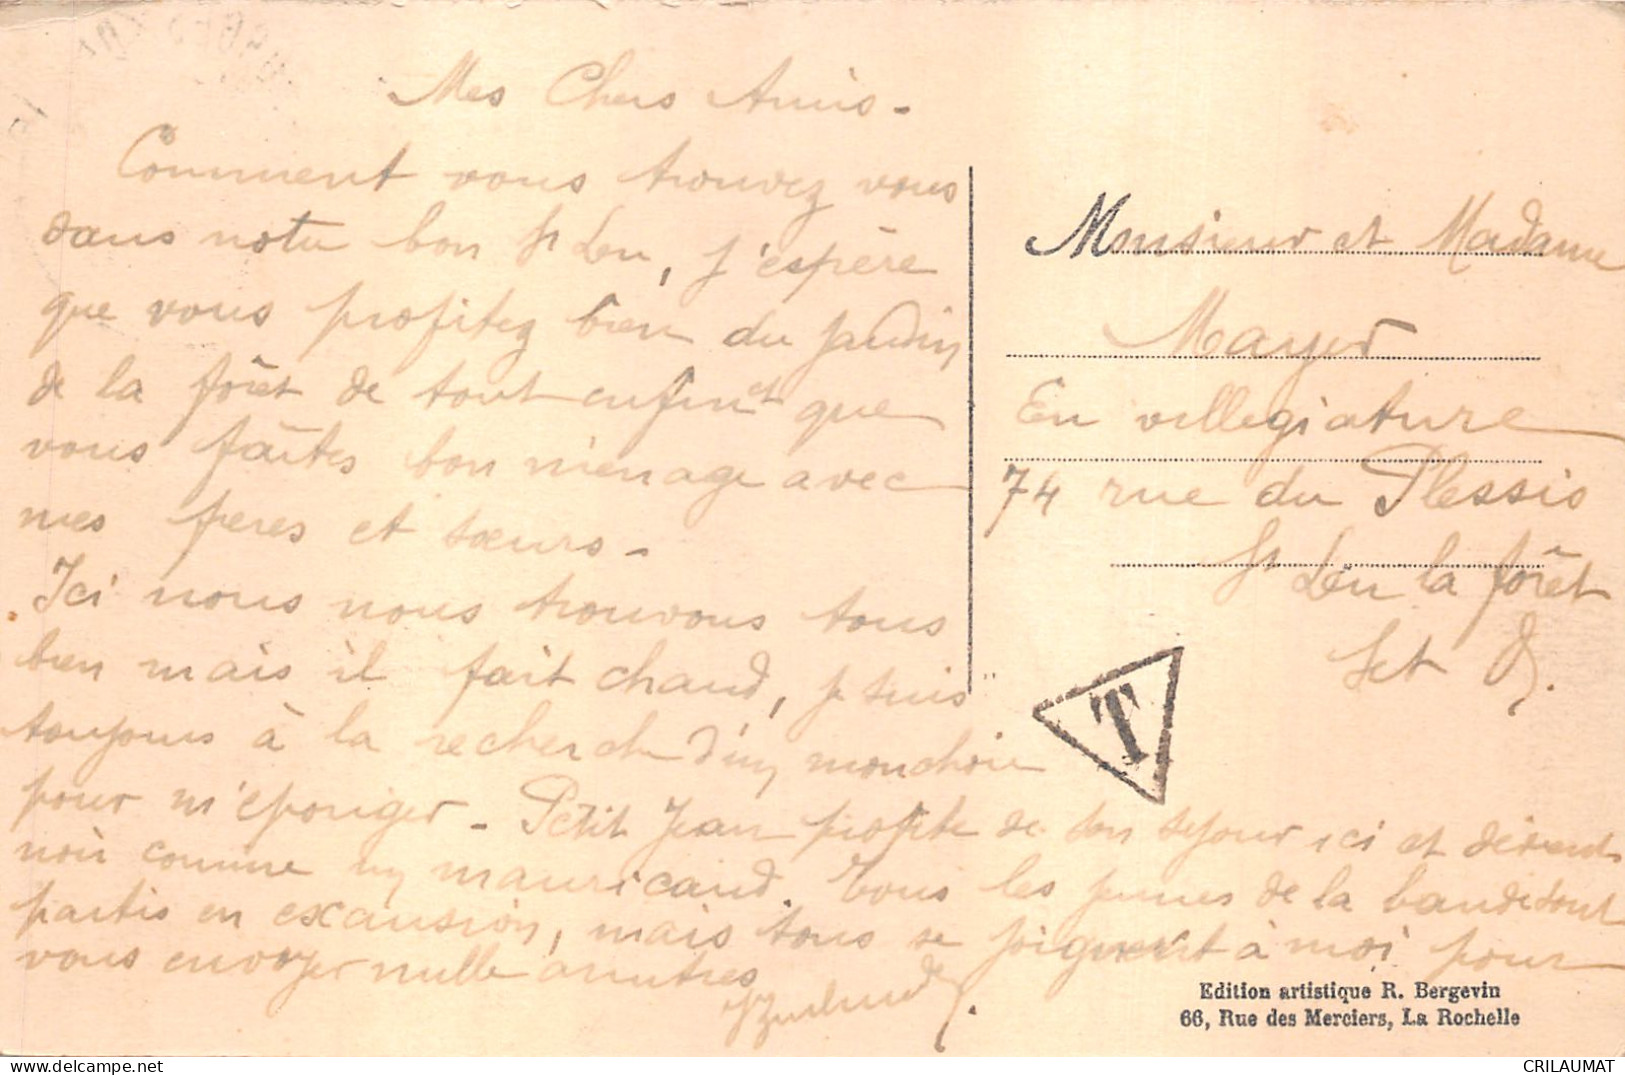 Mes Chers Amis -
Comment vous trouvez vous
dans notre bon St Leu, j'espère
que vous profitez bien du jardin
de la fôret de tout enfin et que
vous faîtes bon ménage avec
mes freres et sœurs -
Ici nous nous trouvons tous
bien mais il fait chaud, je suis
toujours à la recherche d'un mouchoir
pour m'eponger - Petit Jean profite de son sejour ici et devient
noir comme un mauricaud. Tous les jeunes de la bande sont
partis en excursion, mais tous se joignent à moi pour
vous envoyer mille amitiés
Monsieur et Madame
Mayer
En villegiature
74 rue du Plessis
St Leu la fôret
Set O.
T
Edition artistique R. Bergevin
66, Rue des Merciers, La Rochelle
CRILAUMAT